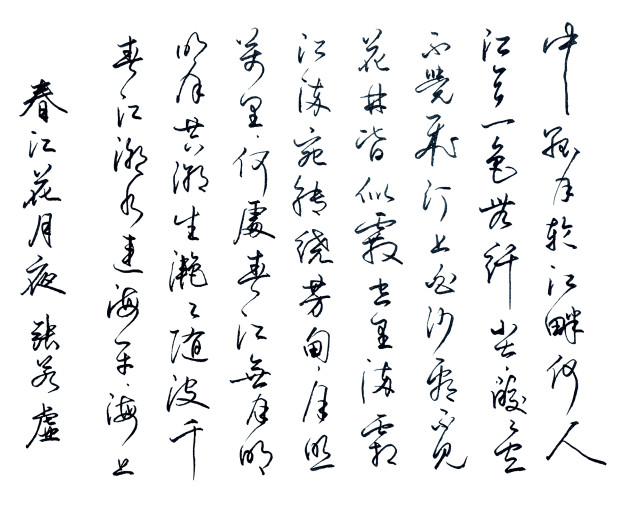 春江花月夜 張若虛
春江潮水連海平海上
明月共潮生灔々随波千
萬里何處春江無月明
江流宛转绕芳甸月照
花林皆似霰空里流霜
不覺飛汀上白沙看不见
江天一色無纤尘皎々空
中孤月轮江畔何人